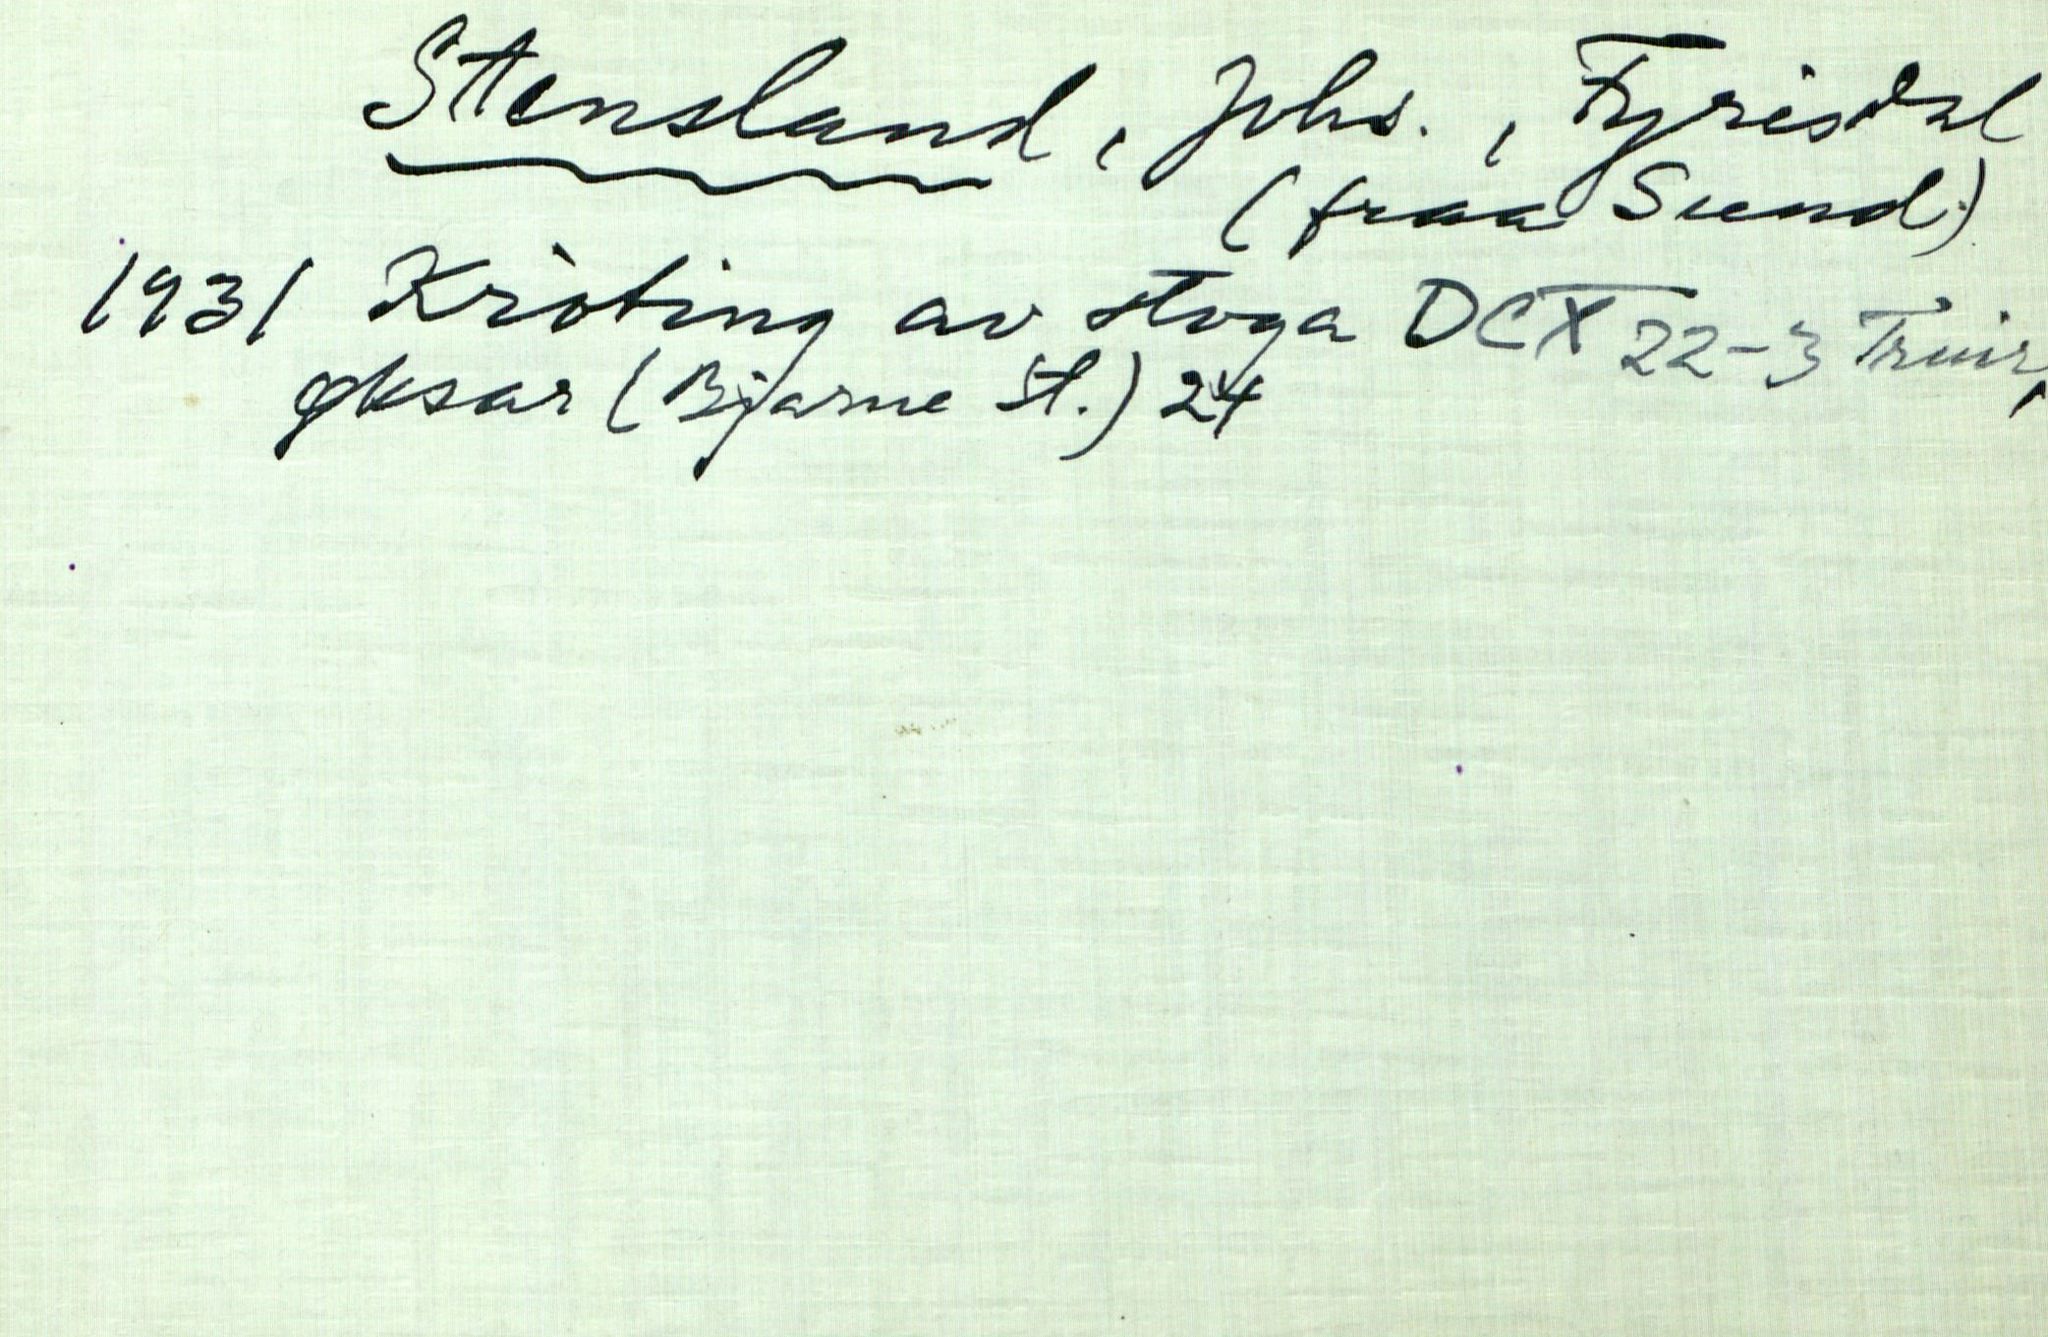 Stensland, Johs., Fyrisdal
(fraa Sund)
1931 Kroting av stoga DCX 22-3 Truir,
gksar (Bjarne St.) 24